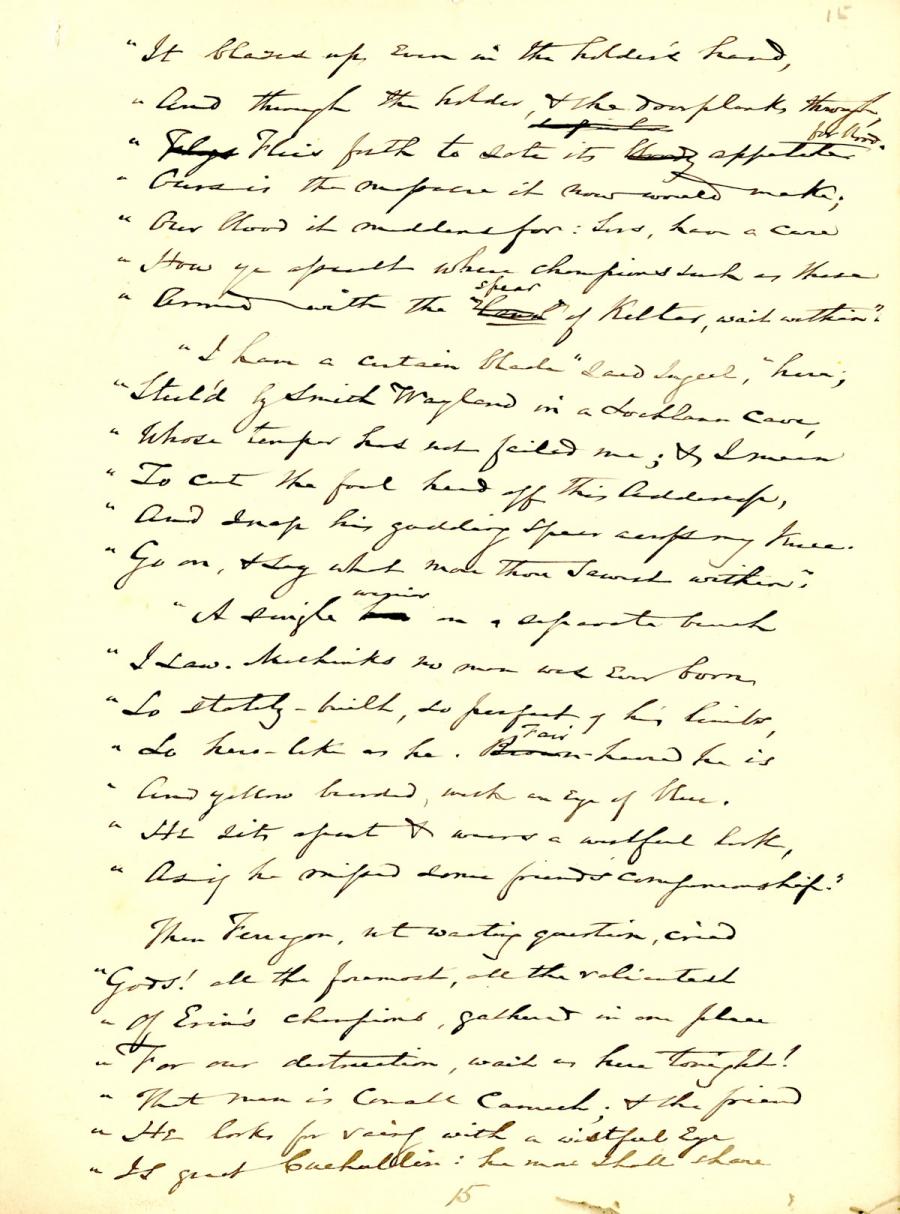 15
"It blazes up, Even in the holder's hand,
" And through the holder, & the doorplanks through,
" Flies forth to sate its appetite for blood.
" Ours is the massacre it now would make;
" Our blood it maddens for: Sirs, have a care
" How ye assault where champions such as these
" Armed with the "spear" of Keltar, wait within".
"I have a certain blade" said Ingcel, "here;
" Steel'd by Smith Wayland in a Lochlann cave,
" Whose temper has not failed me; & I mean
" To cut the foul head off this
" And snap his gadding spear across my Knee.
" Go on, & say what more thou Sawest within".
"A single warrior on a separate bench
" I saw. Methinks no man was Ever born
" So stately-built, so perfect of his limbs,
" So hero-like as he. Fair-haired he is
" And yellow bearded, with an Eye of blue.
" He sits apart & wears a wistful look,
" As if he missed some friend's companionship."
Then Ferragon, not waiting question, cried
"Gods! all the foremost, all the valiantest
" Of Erin's champions, gathered in one place
" For our destruction, wait us here tonight!
" That man is Conall Carnach; & the friend
" He looks for vainly with a wistful Eye
" Is great Cuchullin: he no more shall share
15